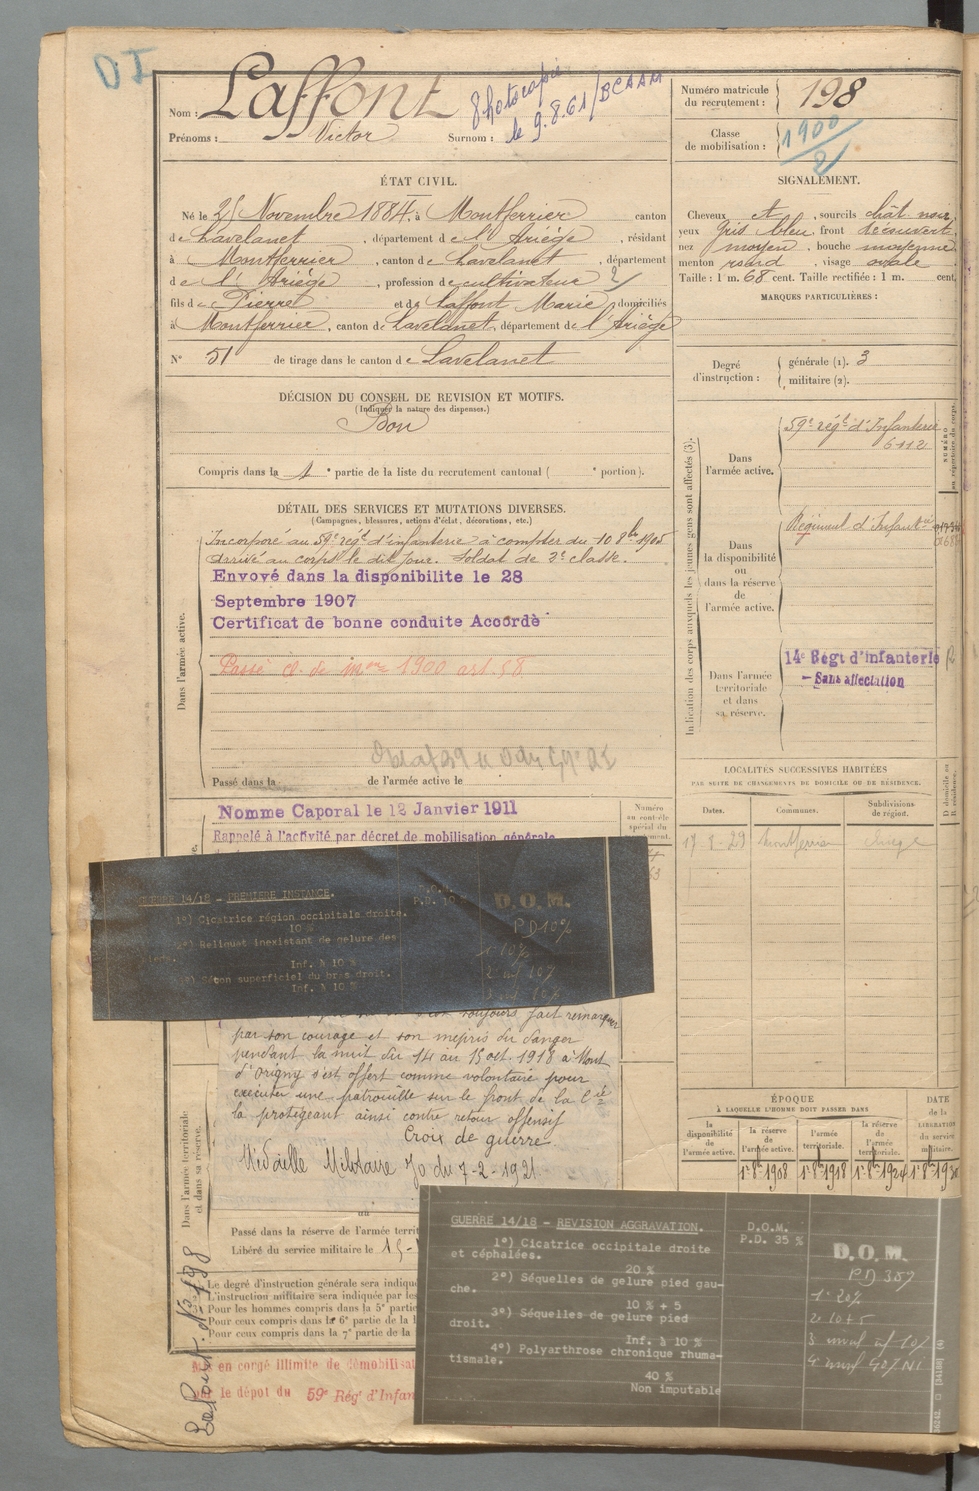 DI
Nom : Laffont
Photocopie
le 9.8.61/BCAAM
Prénoms : Victor Surnom :
Numéro matricule
du recrutement : 198
Classe
de mobilisation : 1900
2
ÉTAT CIVIL.
Né le 25 Novembre 1884, à Montferrier canton
de Lavelanet, département de l'Ariège, résidant
à Montferrier, canton de Lavelanet, département
de l'Ariège, profession de cultivateur
fils de Pierre et de Laffont Marie domiciliés
à Montferrier, canton de Lavelanet, département de l'Ariège
N° 51 de tirage dans le canton de Lavelanet
SIGNALEMENT.
Cheveux et, sourcils chât noir
yeux gris bleu, front découvert
nez moyen, bouche moyenne
menton rond, visage ovale
Taille : 1 m. 68 cent. Taille rectifiée : 1 m. cent.
MARQUES PARTICULIÈRES :
Degré
d'instruction :
générale (1). 3
militaire (2).
DÉCISION DU CONSEIL DE REVISION ET MOTIFS.
(Indiquer la nature des dispenses.)
Bon
Compris dans la 1e partie de la liste du recrutement cantonal ( e portion).
DÉTAIL DES SERVICES ET MUTATIONS DIVERSES.
(Campagnes, blessures, actions d'éclat, décorations, etc.)
Dans l'armée active.
Incorporé au 59e régt d'infanterie à compter du 10 8bre 1905
Arrivé au corps le dit jour. Soldat de 2e classe.
Envoyé dans la disponibilite le 28
Septembre 1907
Certificat de bonne conduite Accordé
Passé cl. de 1900 art. 58
Passé dans la de l'armée active le
Indication des corps auxquels les jeunes gens sont affectés (3).
Dans
l'armée active.
59e régt d'Infanterie
6112
NUMÉRO
au répertoire du corps.
Dans
la disponibilité
ou
dans la réserve
de
l'armée active.
Régiment d'Infanterie
Dans l'armée
territoriale
et dans
sa réserve.
14e Régt d'infanterie
- Sans affectation
LOCALITÉS SUCCESSIVES HABITÉES
PAR SUITE DE CHANGEMENTS DE DOMICILE OU DE RÉSIDENCE.
Dates. Communes. Subdivisions
de région.
D domicile ou
R résidence.
Montferrier
Nomme Caporal le 12 Janvier 1911
Rappelé à l'activité par décret de mobilisation générale
Numéro
au contrôle
spécial du
GUERRE 14/18 - PREMIERE INSTANCE.
1°) Cicatrice région occipitale droite.
10 %
2°) Reliquat inexistant de gelure des
Inf. à 10 %
Séton superficiel du bras droit.
Inf. à 10 %
D.O.M.
P.D. 10
D.O.M.
PD 10%
1° 10%
toujours fait remarquer
par son courage et son mépris du danger
pendant la nuit du 14 au 15 oct. 1918 à Mont
d'Origny s'est offert comme volontaire pour
exécuter une patrouille sur le front de la Cie
la protégeant ainsi contre retour offensif
Croix de guerre
Médaille Militaire Jo du 7-2-1921
Dans l'armée territoriale
et dans sa réserve.
ÉPOQUE
À LAQUELLE L'HOMME DOIT PASSER DANS
DATE
de la
LIBÉRATION
du service
militaire.
la
disponibilité
de
l'armée active.
la réserve
de
l'armée active.
l'armée
territoriale.
la réserve
de
l'armée
territoriale.
1er 8bre 1908 1er 8bre 1918 1er 8bre 1924
Passé dans la réserve de l'armée territ
Libéré du service militaire le 15-
Le degré d'instruction générale sera indiqu
L'instruction militaire sera indiquée par les
Pour les hommes compris dans la 5e partie
Pour ceux compris dans la 6e partie de la l
Pour ceux compris dans la 7e partie de la
en congé illimité de démobilisat
le dépôt du 59e Régt d'Infan
Laffont. No 198
GUERRE 14/18 - REVISION AGGRAVATION.
1°) Cicatrice occipitale droite
et céphalées.
20 %
2°) Séquelles de gelure pied gau-
che.
10 % + 5
3°) Séquelles de gelure pied
droit.
Inf. à 10 %
4°) Polyarthrose chronique rhuma-
tismale.
40 %
Non imputable
D.O.M.
P.D. 35 %
D.O.M.
1° 20%
2° 10+5